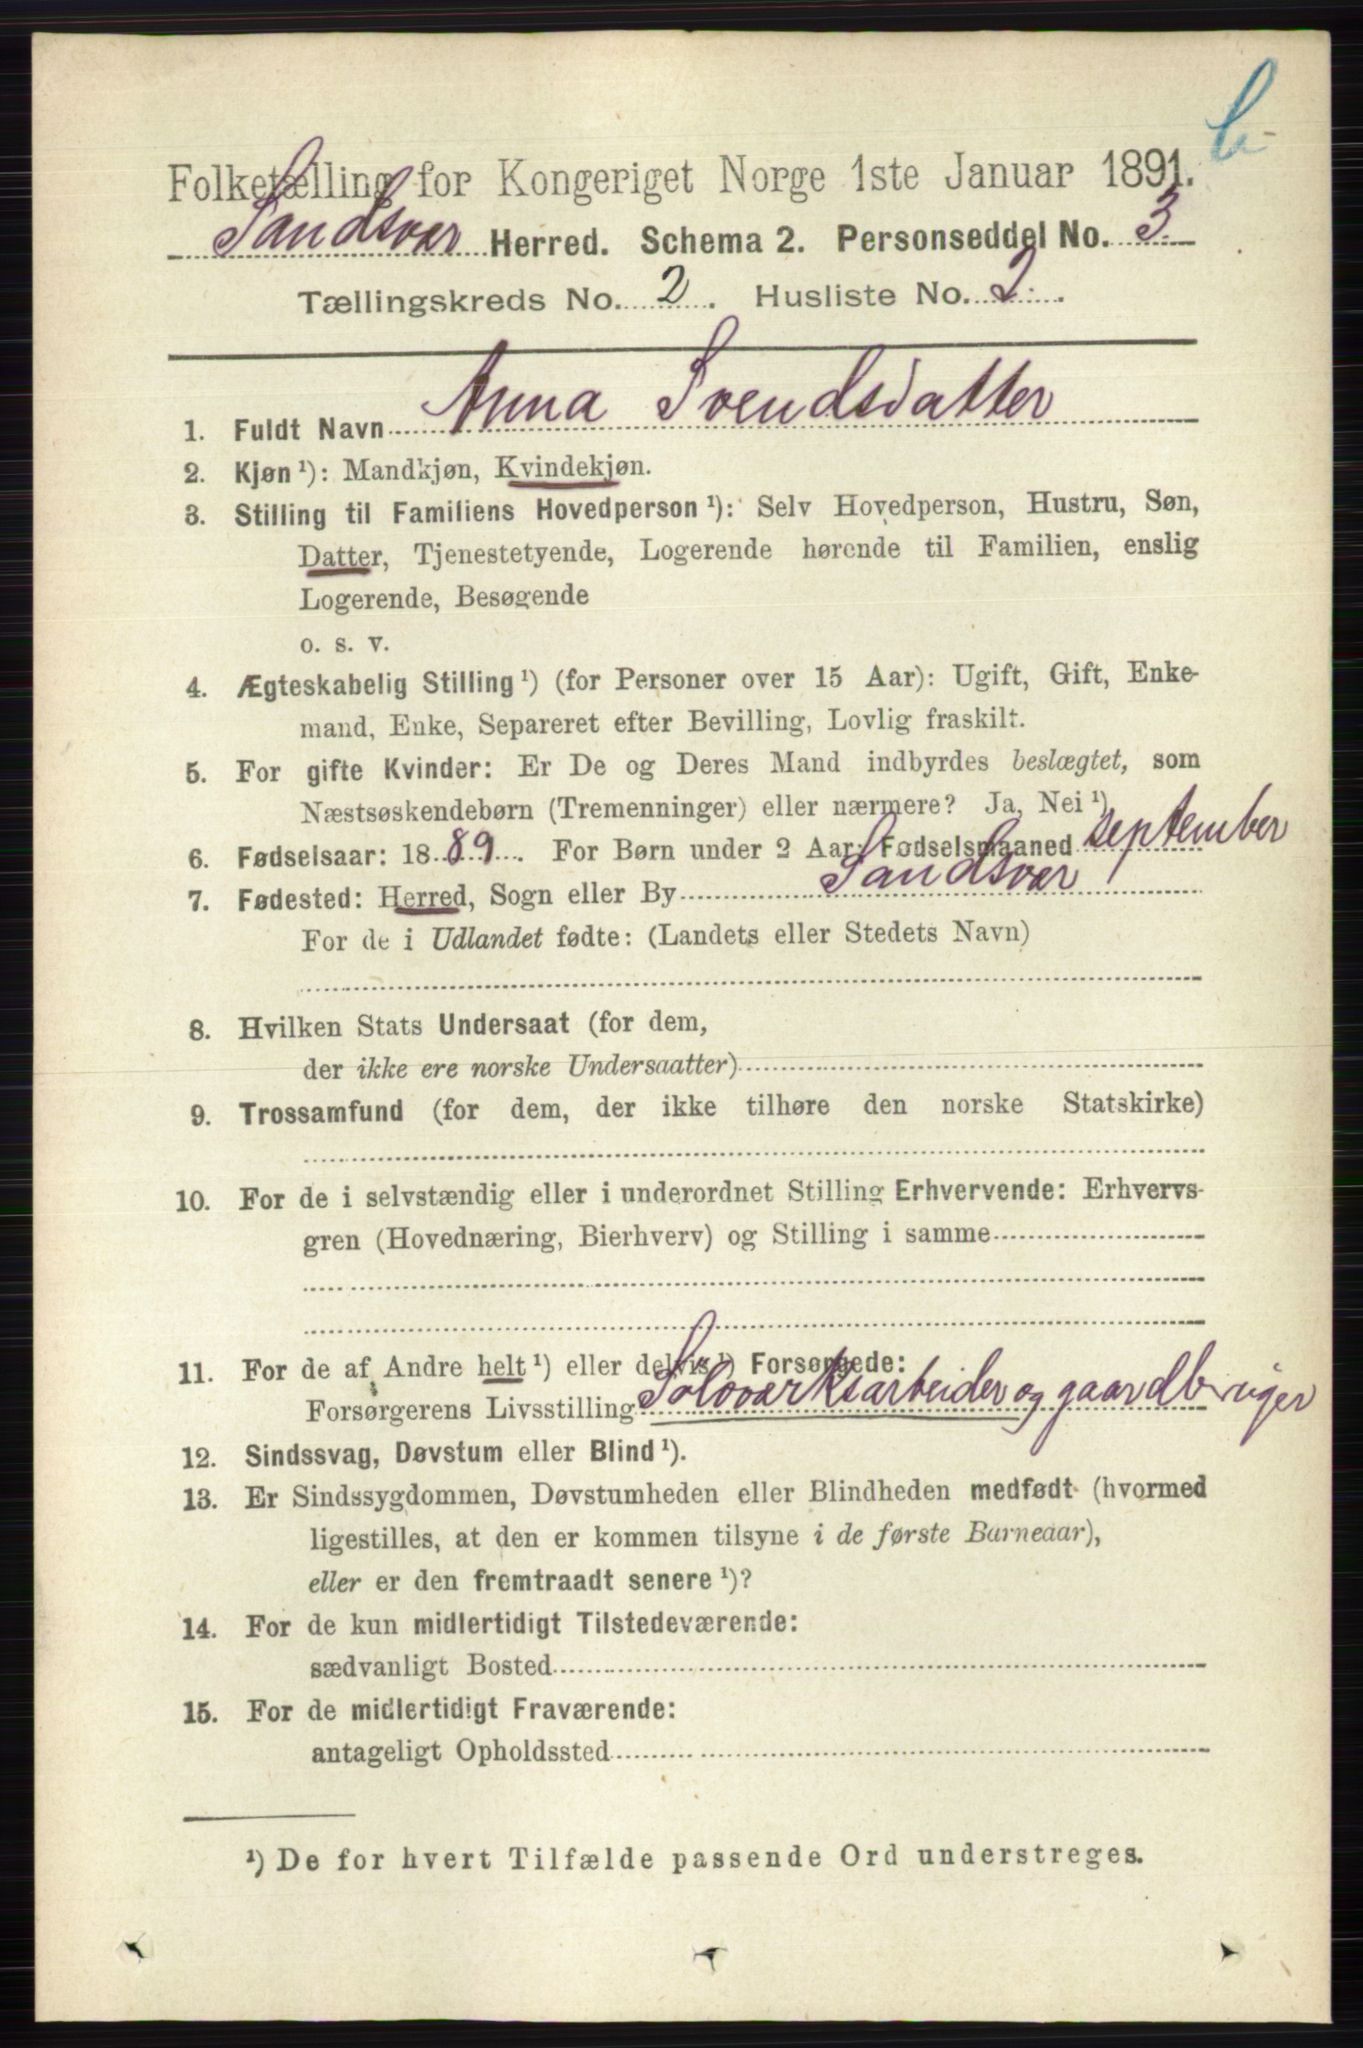 Folketælling for Kongeriget Norge 1ste Januar 1891.
Sandsvær Herred. Schema 2. Personseddel No. 3
Tællingskreds No. 2. Husliste No. 2.
1. Fuldt Navn Anna Svendsdatter
2. Kjøn ¹): Mandkjøn, Kvindekjøn.
3. Stilling til Familiens Hovedperson ¹): Selv Hovedperson, Hustru, Søn,
Datter, Tjenestetyende, Logerende hørende til Familien, enslig
Logerende, Besøgende
o. s. v.
4. Ægteskabelig Stilling ¹) (for Personer over 15 Aar): Ugift, Gift, Enke-
mand, Enke, Separeret efter Bevilling, Lovlig fraskilt.
5. For gifte Kvinder: Er De og Deres Mand indbyrdes beslægtet, som
Næstsøskendebørn (Tremenninger) eller nærmere? Ja, Nei ¹)
6. Fødselsaar: 1889. For Børn under 2 Aar: Fødselsmaaned september
7. Fødested: Herred, Sogn eller By Sandsvær
For de i Udlandet fødte: (Landets eller Stedets Navn)
8. Hvilken Stats Undersaat (for dem,
der ikke ere norske Undersaatter)
9. Trossamfund (for dem, der ikke tilhøre den norske Statskirke)
10. For de i selvstændig eller i underordnet Stilling Erhvervende: Erhvervs-
gren (Hovednæring, Bierhverv) og Stilling i samme
11. For de af Andre helt ¹) eller delvis ¹) Forsørgede:
Forsørgerens Livsstilling Sölvværksarbeider og gaardbruger
12. Sindssvag, Døvstum eller Blind ¹).
13. Er Sindssygdommen, Døvstumheden eller Blindheden medfødt (hvormed
ligestilles, at den er kommen tilsyne i de første Barneaar),
eller er den fremtraadt senere ¹)?
14. For de kun midlertidigt Tilstedeværende:
sædvanligt Bosted
15. For de midlertidigt Fraværende:
antageligt Opholdssted
¹) De for hvert Tilfælde passende Ord understreges.